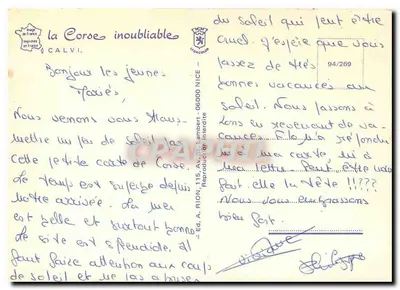 la Corse inoubliable
CALVI.
Bonjour les jeunes
Mariés,
Nous venons vous trans-
mettre un peu de soleil par
cette petite carte de Corse.
Le temps est superbe depuis
notre arrivée. La mer
est belle et surtout bonne
Le site est splendide, il
faut faire attention aux coups
de soleil et ne pas
du soleil qui peut être
cruel. J'espère que vous
passez de très
bonnes vacances au
soleil. Nous passons à
en revenant de va-
cances.
ma carte, lui à
ma lettre. Peut être
fait elle la tête !!???
Nous vous embrassons
bien fort.
94/269
Ed. A. RION, 115, Av. Lambert - 06000 NICE -
Reproduction interdite